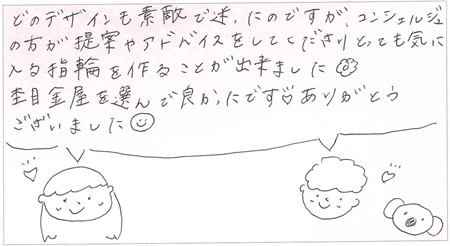 どのデザインも素敵で迷ったのですが、コンシェルジュ
の方が提案やアドバイスをしてくださりとっても気に
入る指輪を作ることが出来ました
杢目金屋を選んで良かったです♡ありがとう
ございました☺